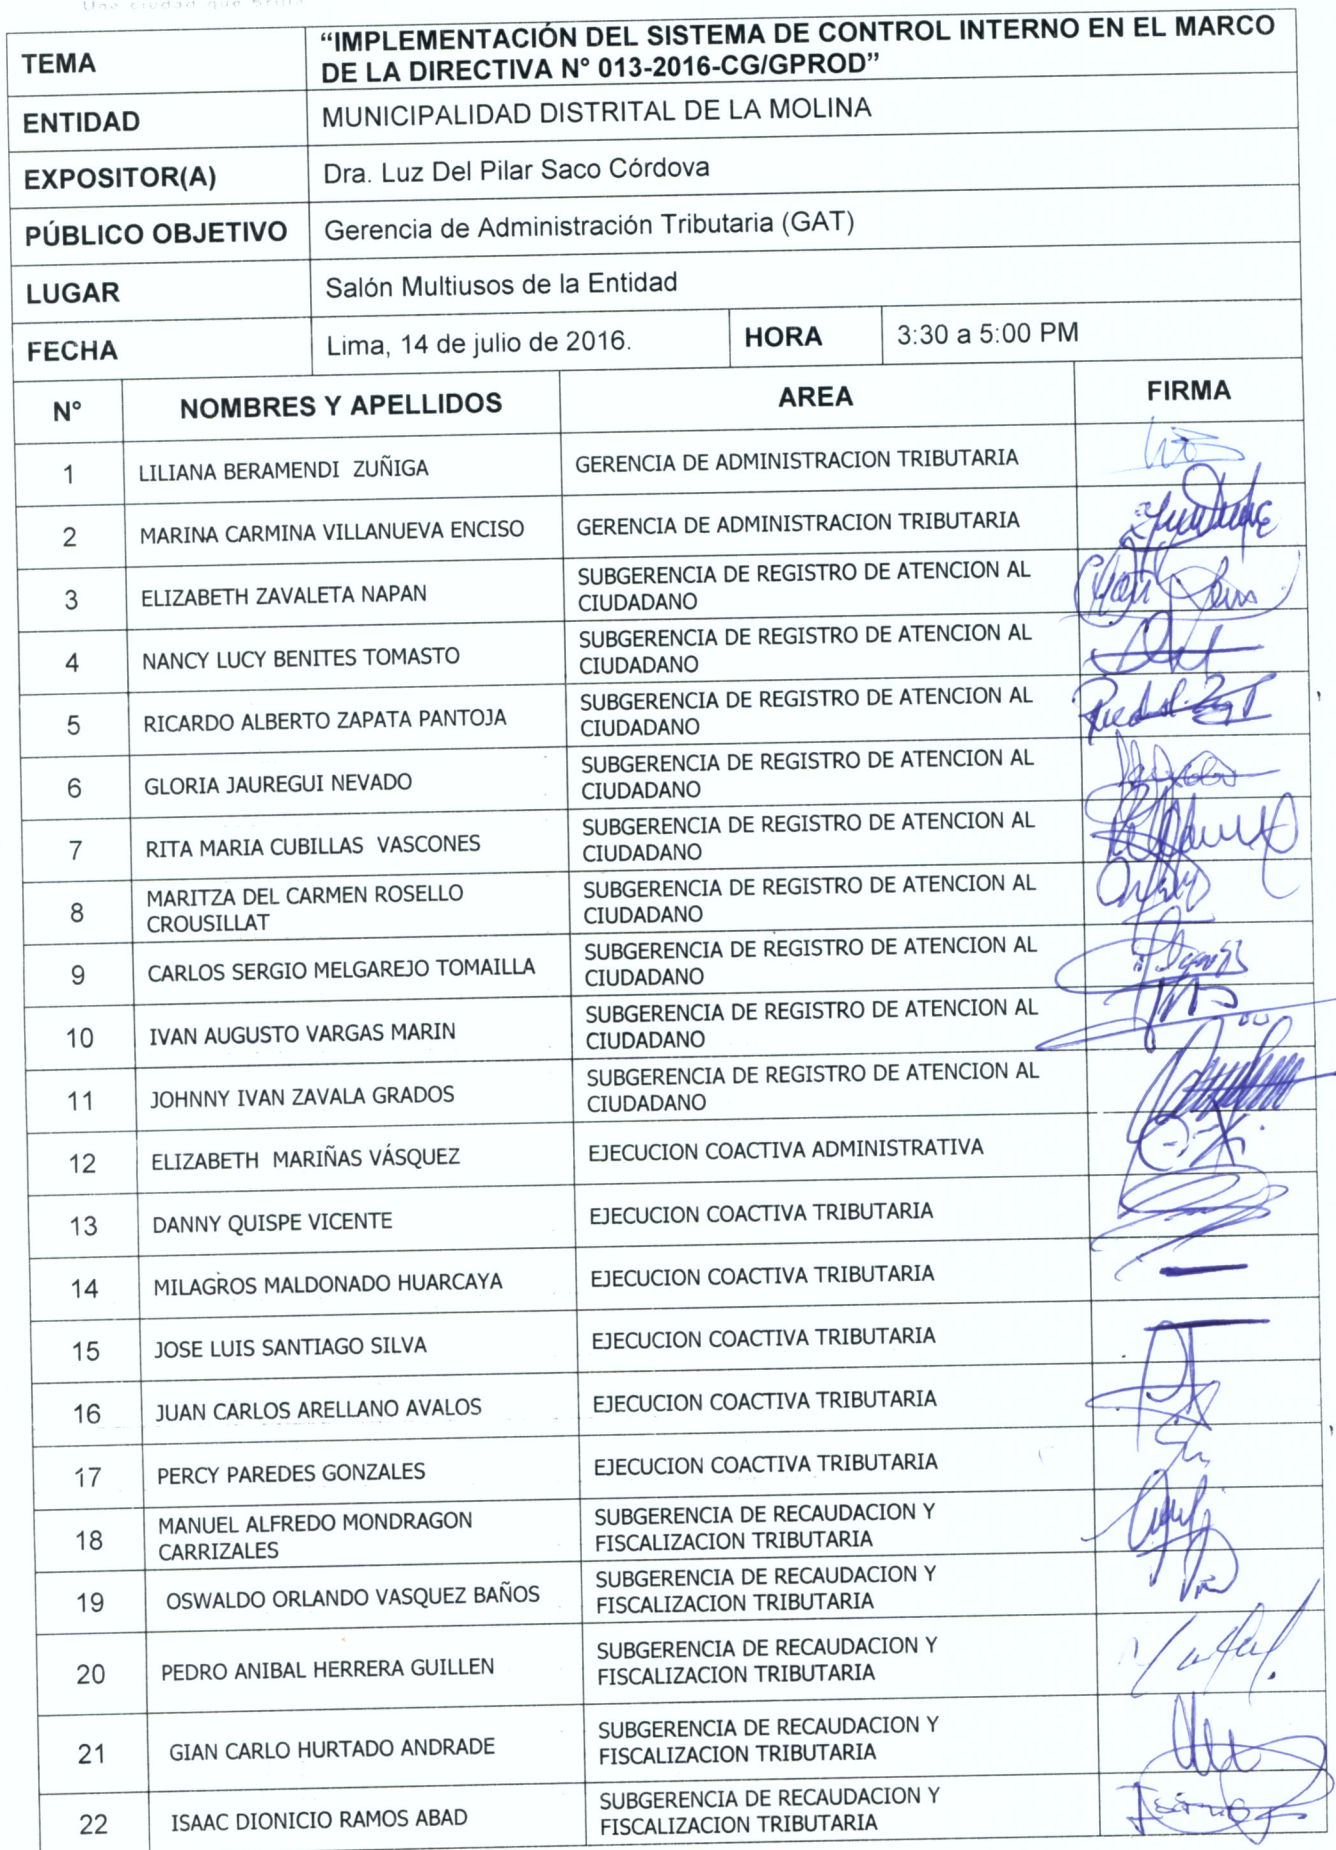 Una ciudad que brilla
TEMA
“IMPLEMENTACIÓN DEL SISTEMA DE CONTROL INTERNO EN EL MARCO
DE LA DIRECTIVA N° 013-2016-CG/GPROD”
ENTIDAD
MUNICIPALIDAD DISTRITAL DE LA MOLINA
EXPOSITOR(A)
Dra. Luz Del Pilar Saco Córdova
PÚBLICO OBJETIVO
Gerencia de Administración Tributaria (GAT)
LUGAR
Salón Multiusos de la Entidad
FECHA
Lima, 14 de julio de 2016.
HORA
3:30 a 5:00 PM
N° NOMBRES Y APELLIDOS AREA FIRMA
1 LILIANA BERAMENDI ZUÑIGA GERENCIA DE ADMINISTRACION TRIBUTARIA
2 MARINA CARMINA VILLANUEVA ENCISO GERENCIA DE ADMINISTRACION TRIBUTARIA
3 ELIZABETH ZAVALETA NAPAN SUBGERENCIA DE REGISTRO DE ATENCION AL
CIUDADANO
4 NANCY LUCY BENITES TOMASTO SUBGERENCIA DE REGISTRO DE ATENCION AL
CIUDADANO
5 RICARDO ALBERTO ZAPATA PANTOJA SUBGERENCIA DE REGISTRO DE ATENCION AL
CIUDADANO
6 GLORIA JAUREGUI NEVADO SUBGERENCIA DE REGISTRO DE ATENCION AL
CIUDADANO
7 RITA MARIA CUBILLAS VASCONES SUBGERENCIA DE REGISTRO DE ATENCION AL
CIUDADANO
8 MARITZA DEL CARMEN ROSELLO
CROUSILLAT
SUBGERENCIA DE REGISTRO DE ATENCION AL
CIUDADANO
9 CARLOS SERGIO MELGAREJO TOMAILLA SUBGERENCIA DE REGISTRO DE ATENCION AL
CIUDADANO
10 IVAN AUGUSTO VARGAS MARIN SUBGERENCIA DE REGISTRO DE ATENCION AL
CIUDADANO
11 JOHNNY IVAN ZAVALA GRADOS SUBGERENCIA DE REGISTRO DE ATENCION AL
CIUDADANO
12 ELIZABETH MARIÑAS VÁSQUEZ EJECUCION COACTIVA ADMINISTRATIVA
13 DANNY QUISPE VICENTE EJECUCION COACTIVA TRIBUTARIA
14 MILAGROS MALDONADO HUARCAYA EJECUCION COACTIVA TRIBUTARIA
15 JOSE LUIS SANTIAGO SILVA EJECUCION COACTIVA TRIBUTARIA
16 JUAN CARLOS ARELLANO AVALOS EJECUCION COACTIVA TRIBUTARIA
17 PERCY PAREDES GONZALES EJECUCION COACTIVA TRIBUTARIA
18 MANUEL ALFREDO MONDRAGON
CARRIZALES
SUBGERENCIA DE RECAUDACION Y
FISCALIZACION TRIBUTARIA
19 OSWALDO ORLANDO VASQUEZ BAÑOS SUBGERENCIA DE RECAUDACION Y
FISCALIZACION TRIBUTARIA
20 PEDRO ANIBAL HERRERA GUILLEN SUBGERENCIA DE RECAUDACION Y
FISCALIZACION TRIBUTARIA
21 GIAN CARLO HURTADO ANDRADE SUBGERENCIA DE RECAUDACION Y
FISCALIZACION TRIBUTARIA
22 ISAAC DIONICIO RAMOS ABAD SUBGERENCIA DE RECAUDACION Y
FISCALIZACION TRIBUTARIA